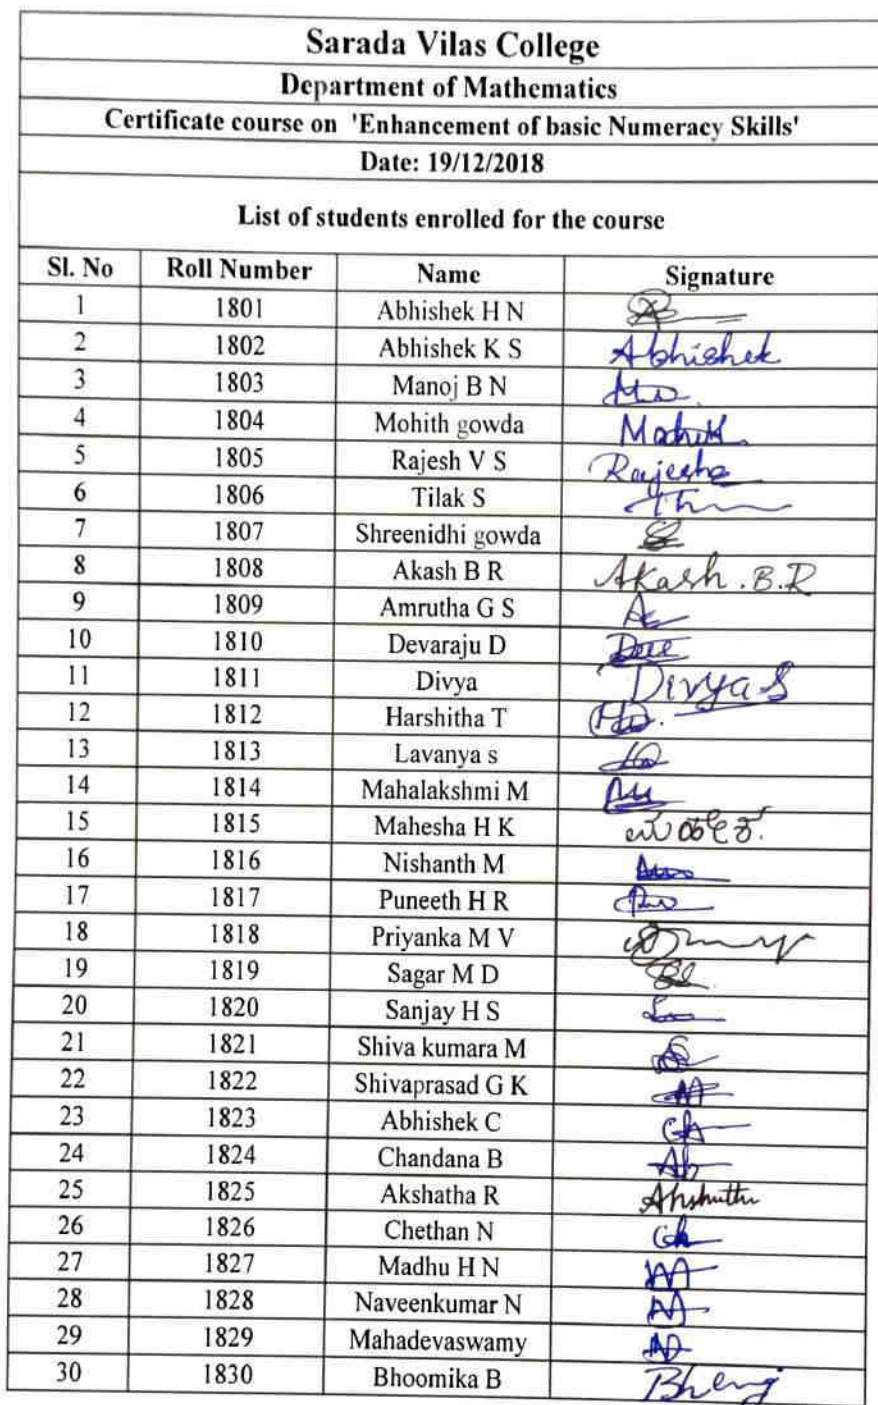 Sarada Vilas College
Department of Mathematics
Certificate course on 'Enhancement of basic Numeracy Skills'
Date: 19/12/2018
List of students enrolled for the course
Sl. No Roll Number Name Signature
1 1801 Abhishek H N
2 1802 Abhishek K S Abhishek
3 1803 Manoj B N
4 1804 Mohith gowda
5 1805 Rajesh V S
6 1806 Tilak S
7 1807 Shreenidhi gowda
8 1808 Akash B R Akash.B.R
9 1809 Amrutha G S
10 1810 Devaraju D
11 1811 Divya Divya S
12 1812 Harshitha T
13 1813 Lavanya s
14 1814 Mahalakshmi M
15 1815 Mahesha H K
16 1816 Nishanth M
17 1817 Puneeth H R
18 1818 Priyanka M V
19 1819 Sagar M D
20 1820 Sanjay H S
21 1821 Shiva kumara M
22 1822 Shivaprasad G K
23 1823 Abhishek C
24 1824 Chandana B
25 1825 Akshatha R
26 1826 Chethan N
27 1827 Madhu H N
28 1828 Naveenkumar N
29 1829 Mahadevaswamy
30 1830 Bhoomika B